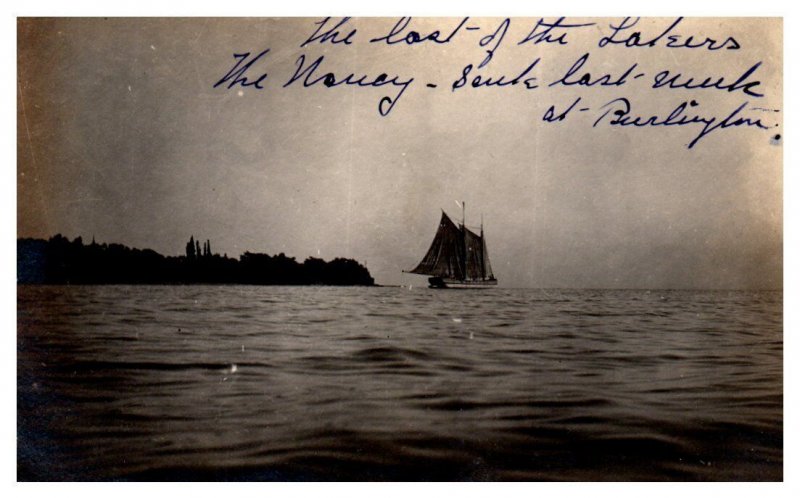 The last of the Lakers
The Nancy - Sunk last week
at Burlington.